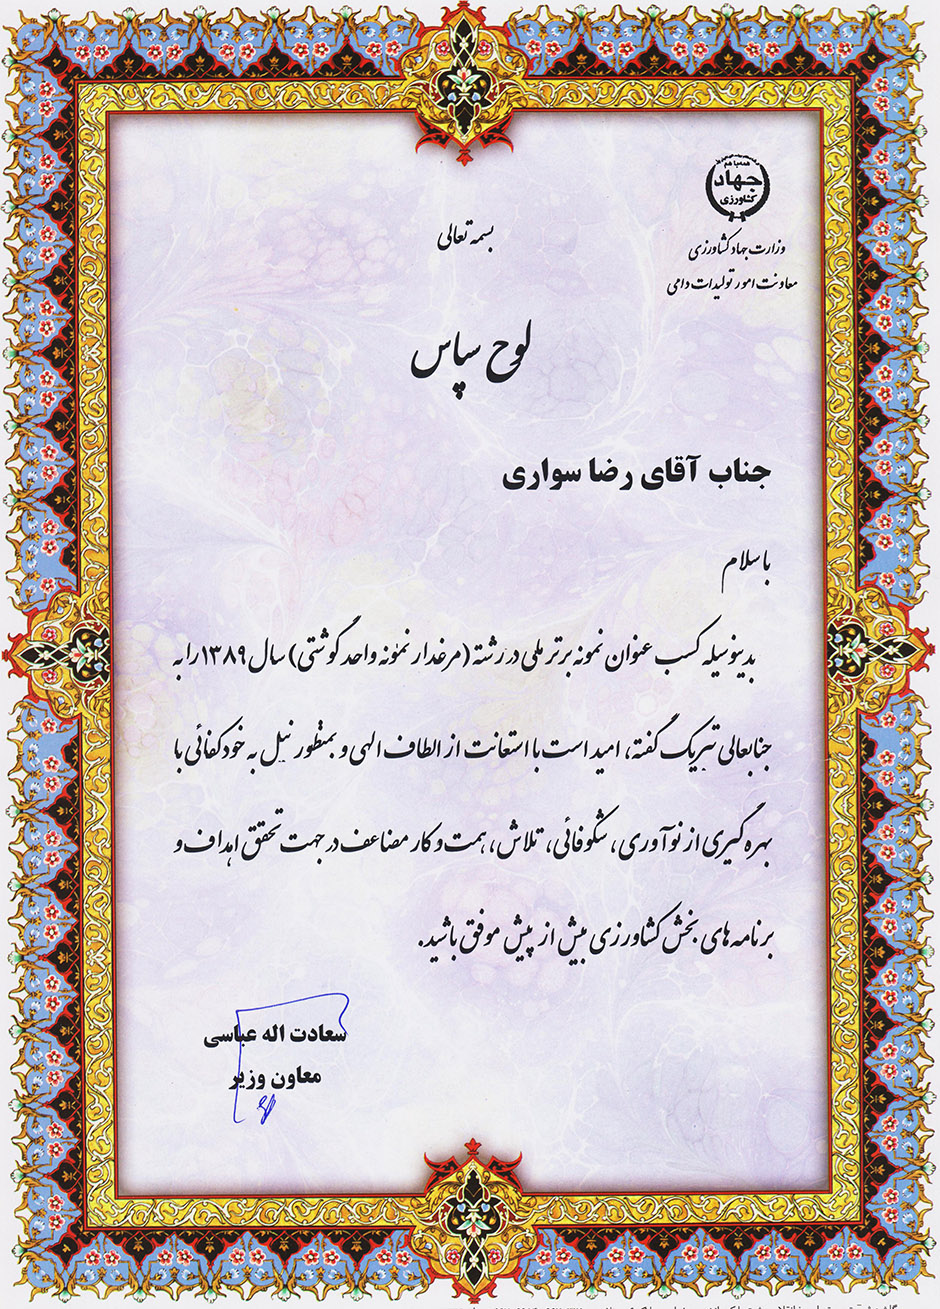 همه با هم
جهاد
کشاورزی
وزارت جهاد کشاورزی
معاونت امور تولیدات دامی
بسمه تعالی
لوح سپاس
جناب آقای رضا سواری
با سلام
بدینوسیله کسب عنوان نمونه برتر ملی در رشته (مرغدار نمونه واحد گوشتی) سال ۱۳۸۹ را به
جنابعالی تبریک گفته، امید است با استعانت از الطاف الهی و بمنظور نیل به خودکفائی با
بهره گیری از نوآوری، شکوفائی، تلاش، همت و کار مضاعف در جهت تحقق اهداف و
برنامه های بخش کشاورزی بیش از پیش موفق باشید.
سعادت اله عباسی
معاون وزیر